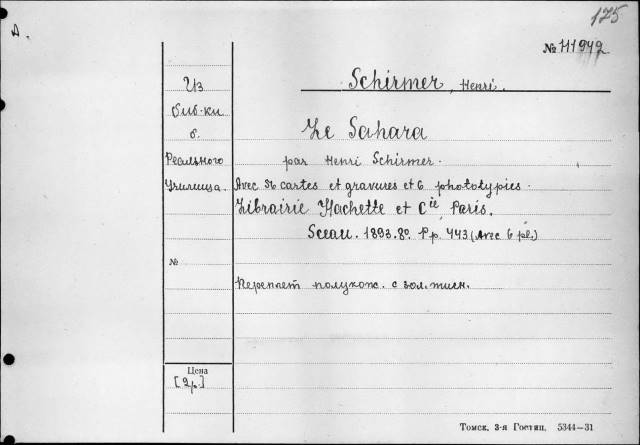 175
А.
№ 111942
Schirmer, Henri.
Из
биб-ки
б.
Реального
Училища.
Le Sahara
par Henri Schirmer.
Avec 56 cartes et gravures et 6 phototypies.
Librairie Hachette et Cie, Paris.
Sceau. 1893. 8º. Pp. 443 (Avec 6 pl.)
№
Переплет полукож. с зол. тисн.
Цена
[2р.]
Томск, 3-я Гостип. 5344—31